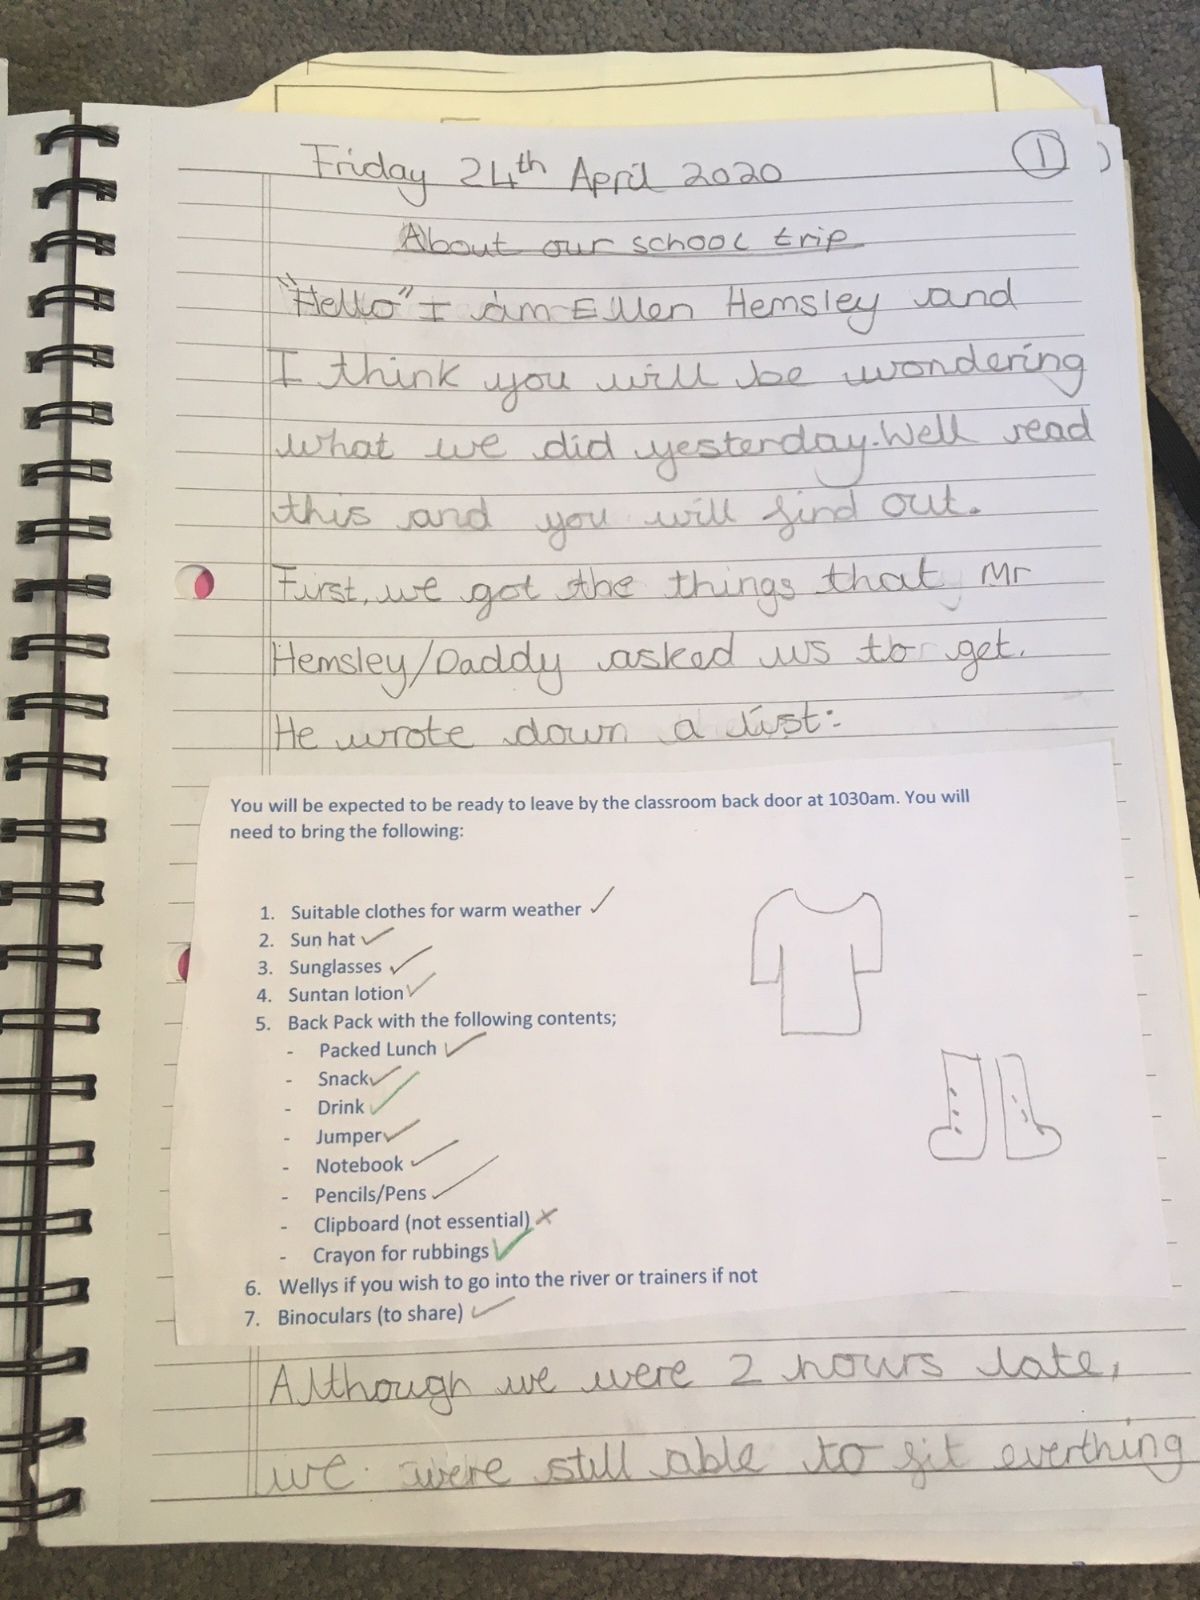 Friday 24th April 2020
1
About our school trip
"Hello" I am Ellen Hemsley and
I think you will be wondering
what we did yesterday. Well read
this and you will find out.
First, we got the things that Mr
Hemsley/Daddy asked us to get.
He wrote down a list:
You will be expected to be ready to leave by the classroom back door at 1030am. You will
need to bring the following:
1. Suitable clothes for warm weather ✓
2. Sun hat ✓
3. Sunglasses ✓
4. Suntan lotion ✓
5. Back Pack with the following contents;
- Packed Lunch ✓
- Snack ✓
- Drink ✓
- Jumper ✓
- Notebook ✓
- Pencils/Pens ✓
- Clipboard (not essential) ✗
- Crayon for rubbings ✓
6. Wellys if you wish to go into the river or trainers if not
7. Binoculars (to share) ✓
Although we were 2 hours late,
we were still able to fit everthing